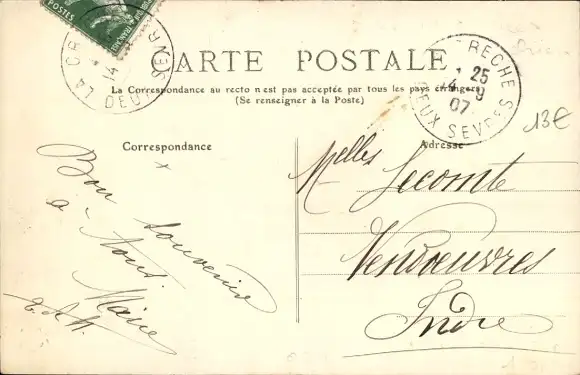 POSTES
CARTE POSTALE
La Correspondance au recto n'est pas acceptée par tous les pays étrangers
(Se renseigner à la Poste)
LA CR
14
DEUX SEVR
CRECHE
25
14 9
07
DEUX SEVRES
13€
Correspondance
Adresse
Bon souvenir
à tous
Marie
Melles Lecomte
Vendoeuvres
Indre